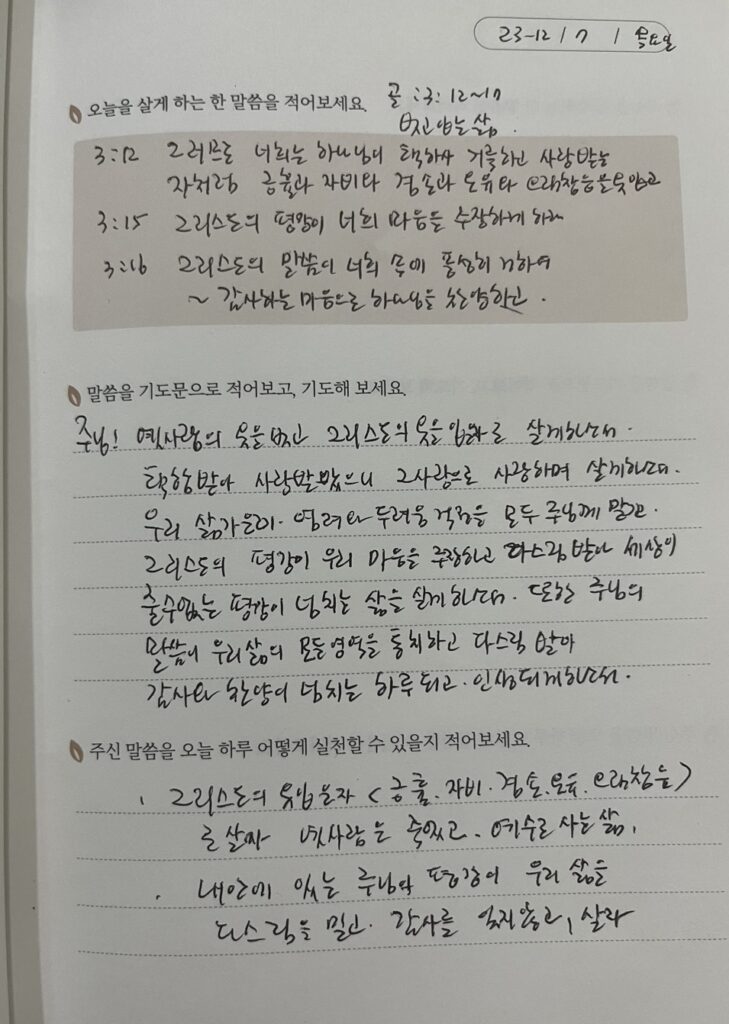 23-12 / 7 / 목요일
오늘을 살게 하는 한 말씀을 적어보세요. 골 :3: 12~17
벗고입는삶.
3:12 그러므로 너희는 하나님이 택하사 거룩하고 사랑받는
자처럼 긍휼과 자비와 겸손과 온유와 오래참음을옷입고
3:15 그리스도의 평강이 너희 마음을 주장하게 하라
3:16 그리스도의 말씀이 너희 속에 풍성히 거하여
~ 감사하는 마음으로 하나님을 찬양하고.
말씀을 기도문으로 적어보고, 기도해 보세요.
주님! 옛사람의 옷을벗고 그리스도의옷을입 로 살게하소서.
택함받아 사랑받 았으니 그사랑으로 사랑하며 살게하소서.
우리 삶가운데. 염려와 두려움 걱정을 모두 주님께 맡기고.
그리스도의 평강이 우리 마음을 주장하고 다스림 받아 세상이
줄수없는 평강이 넘치는 삶을 살게하소서. 또한 주님의
말씀이 우리삶의 모든영역을 통치하고 다스림 받아
감사와 찬양이 넘치는 하루되고. 인생되게하소서.
주신 말씀을 오늘 하루 어떻게 실천할 수 있을지 적어보세요.
. 그리스도의 옷입은자 < 긍휼. 자비. 겸손. 온유. 오래참음>
로 살자 옛사람은 죽었고. 예수로 사는삶,
. 내안에 있는 주님의 평강이 우리 삶을
다스림을 믿고. 감사를 잊지않고, 살라